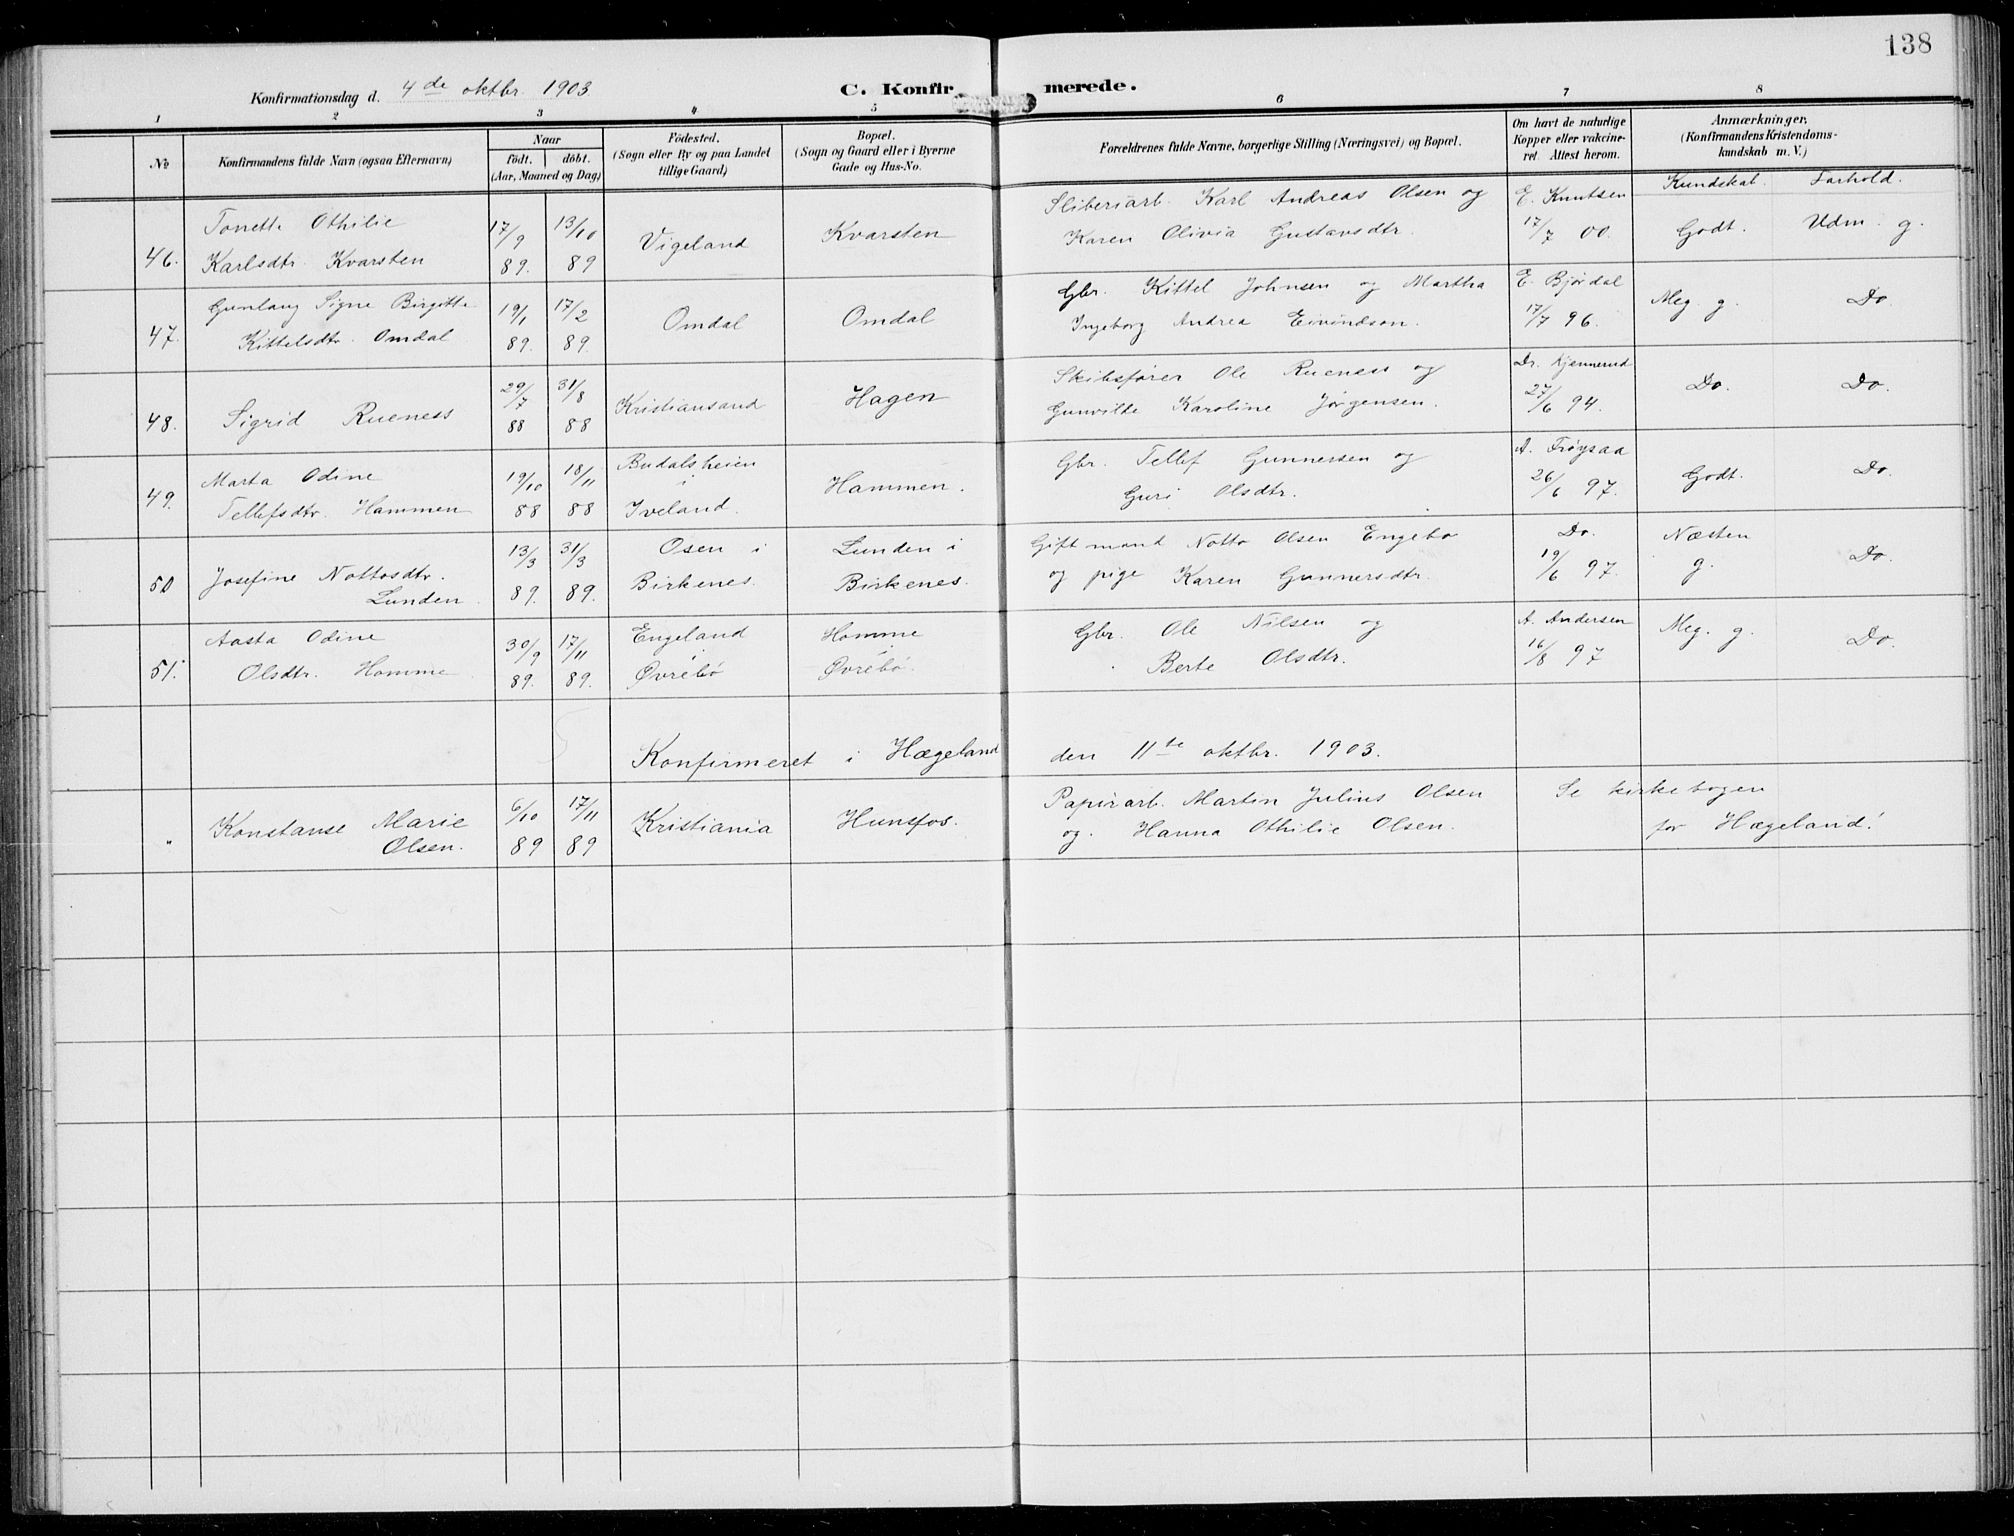 138
Konfirmationsdag d. 4de oktbr. 1903
C. Konfirmerede.
1 2 3 4 5 6 7 8
No
Konfirmandens fulde Navn (ogsaa Efternavn)
Naar
født. døbt.
(Aar, Maaned og Dag)
Fødested.
(Sogn eller By og paa Landet
tillige Gaard)
Bopæl.
(Sogn og Gaard eller i Byerne
Gade og Hus-No.
Forældrenes fulde Navne, borgerlige Stilling (Næringsvei) og Bopæl.
Om havt de naturlige
Kopper eller vakcine-
ret. Attest herom.
Anmærkninger,
(Konfirmandens Kristendoms-
kundskab m. V.)
Kundskab. Forhold.
46. Tonette Othilie
Karlsdtr. Kvarsten
17/9 89. 13/10 89
Vigeland
Kvarsten
Sliberiarb. Karl Andreas Olsen og
Karen Olivia Gustavsdtr.
E. Knutsen
17/7 00.
Godt. Udm. g.
47. Gunlaug Signe Birgitte
Kittelsdtr. Omdal
19/1 89. 17/2 89.
Omdal
Omdal
Gbr. Kittel Johnsen og Martha
Ingeborg Andrea Eivindson.
E. Bjørdal
17/7 96.
Meg. g. Do.
48. Sigrid Rueness
29/7 88 31/8 88
Kristiansand
Hagen
Skibsfører Ole Rueness og
Gunvilde Karoline Jørgensen.
Dr. Kjennerud
27/6 94.
Do. Do.
49. Marta Odine
Tellefsdtr. Hammen
19/10 88 18/11 88
Budalsheien
i
Iveland.
Hammen.
Gbr. Tellef Gunnersen og
Guri Olsdtr.
A. Frøysaa
26/6 97.
Godt. Do.
50 Josefine Nottosdtr.
Lunden.
13/3 89. 31/3 89.
Osen i
Birkenes.
Lunden i
Birkenes.
Gift mand Notto Olsen Engebo
og pige Karen Gunnersdtr.
Do.
19/6 97.
Næsten
g.
Do.
51. Aasta Odine
Olsdtr. Homme
30/9 89. 17/11 89.
Engeland
Øvrebø
Homme
Øvrebø.
Gbr. Ole Nilsen og
Berte Olsdtr.
A. Andersen
16/8 97
Meg. g. Do.
Konfirmeret i Hægeland den 11te oktbr. 1903.
" Konstanse Marie
Olsen.
6/10 89 17/11 89
Kristiania
Hunsfos.
Papirarb. Martin Julius Olsen
og. Hanna Othilie Olsen.
Se kirkebogen
for Hægeland!